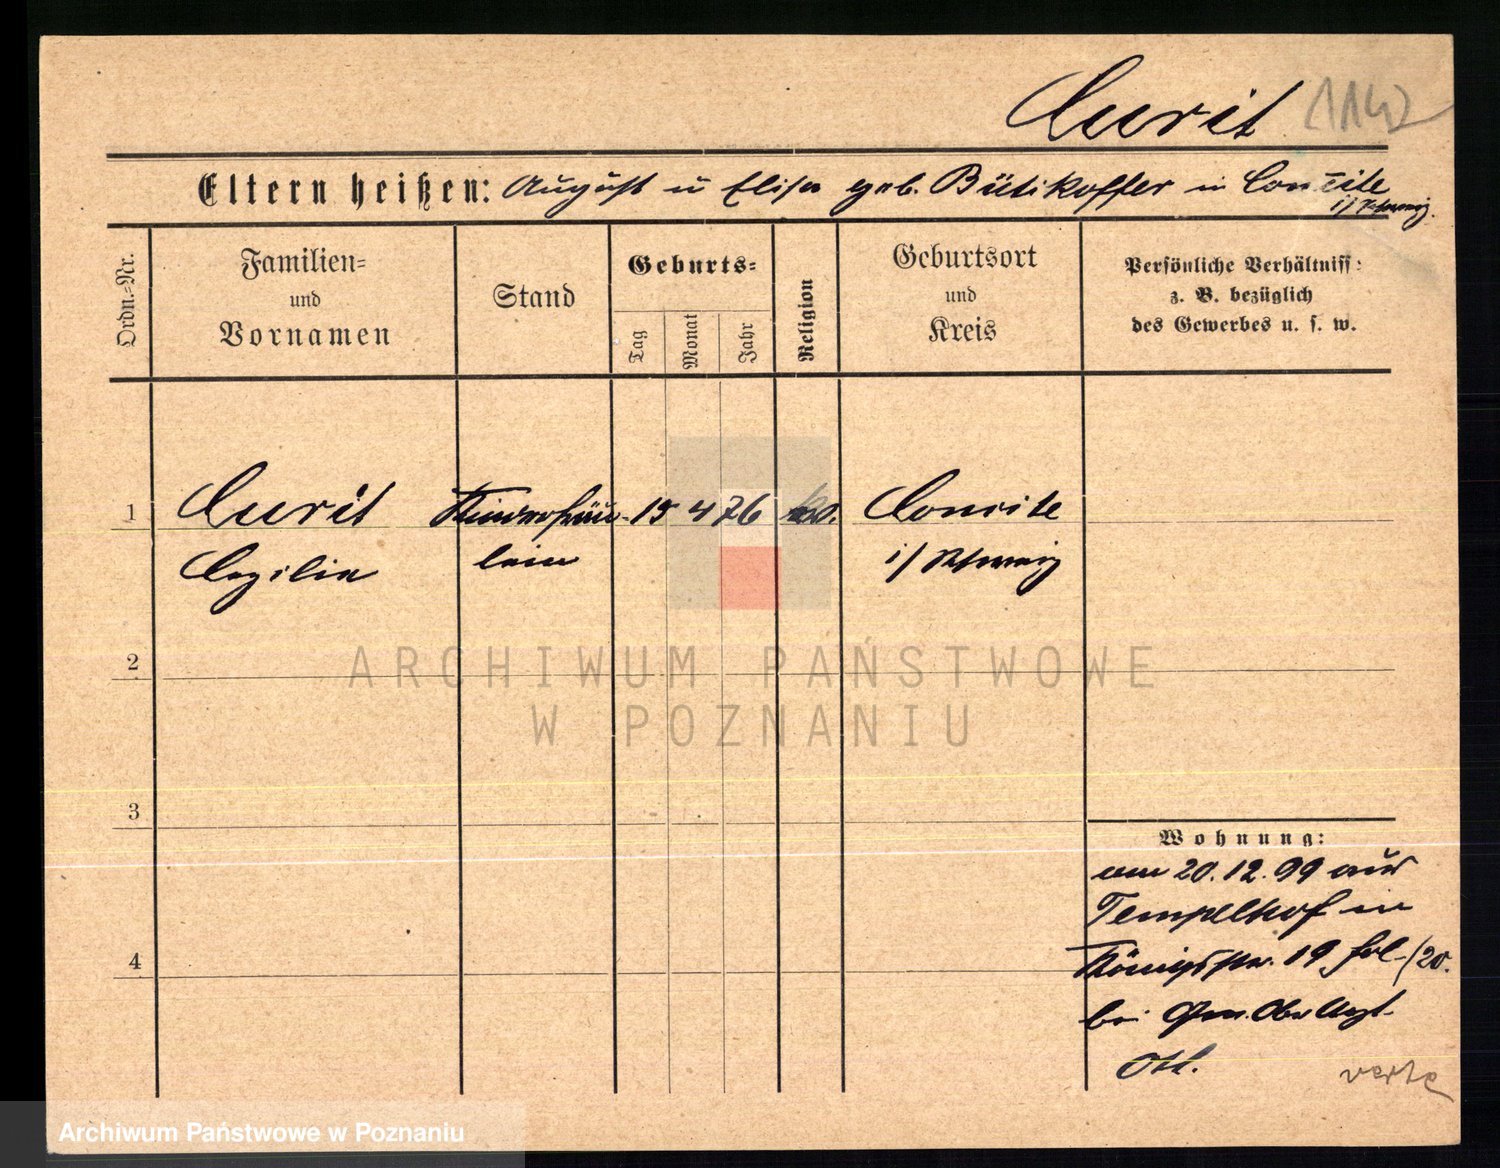 Curit 1142
Eltern heißen: August u Elisa geb. Bütikoffer in Concite
i/Schweiz.
Ordn.-Nr.
Familien-
und
Vornamen
Stand
Geburts-
Tag
Monat
Jahr
Religion
Geburtsort
und
Kreis
Persönliche Verhältniss:
z. B. bezüglich
des Gewerbes u. s. w.
1 Curit Kinderfräu- 15 4 76 Concite
Cezilia lein i/Schweiz
2
ARCHIWUM PAŃSTWOWE
W POZNANIU
3
Wohnung:
am 20.12.99 aus
Tempelhof in
4
Königsstr. 19
bei Gen. Ober Arzt
verte
Archiwum Państwowe w Poznaniu